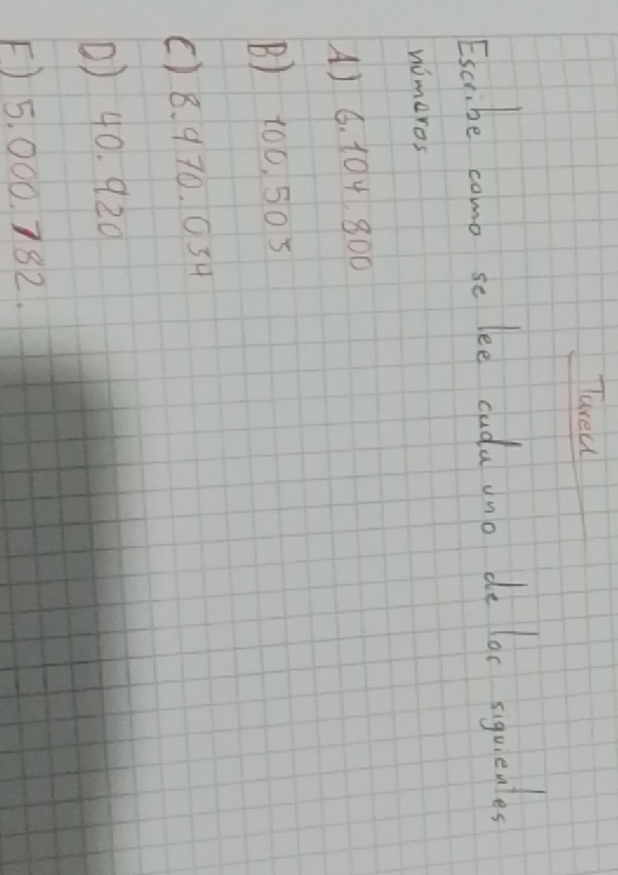 Tarea
Escribe como se lee cada uno de los siguientes
números
A) 6.104.800
B) 100.503
C) 8.970.034
D) 40.920
E) 5.000.782.